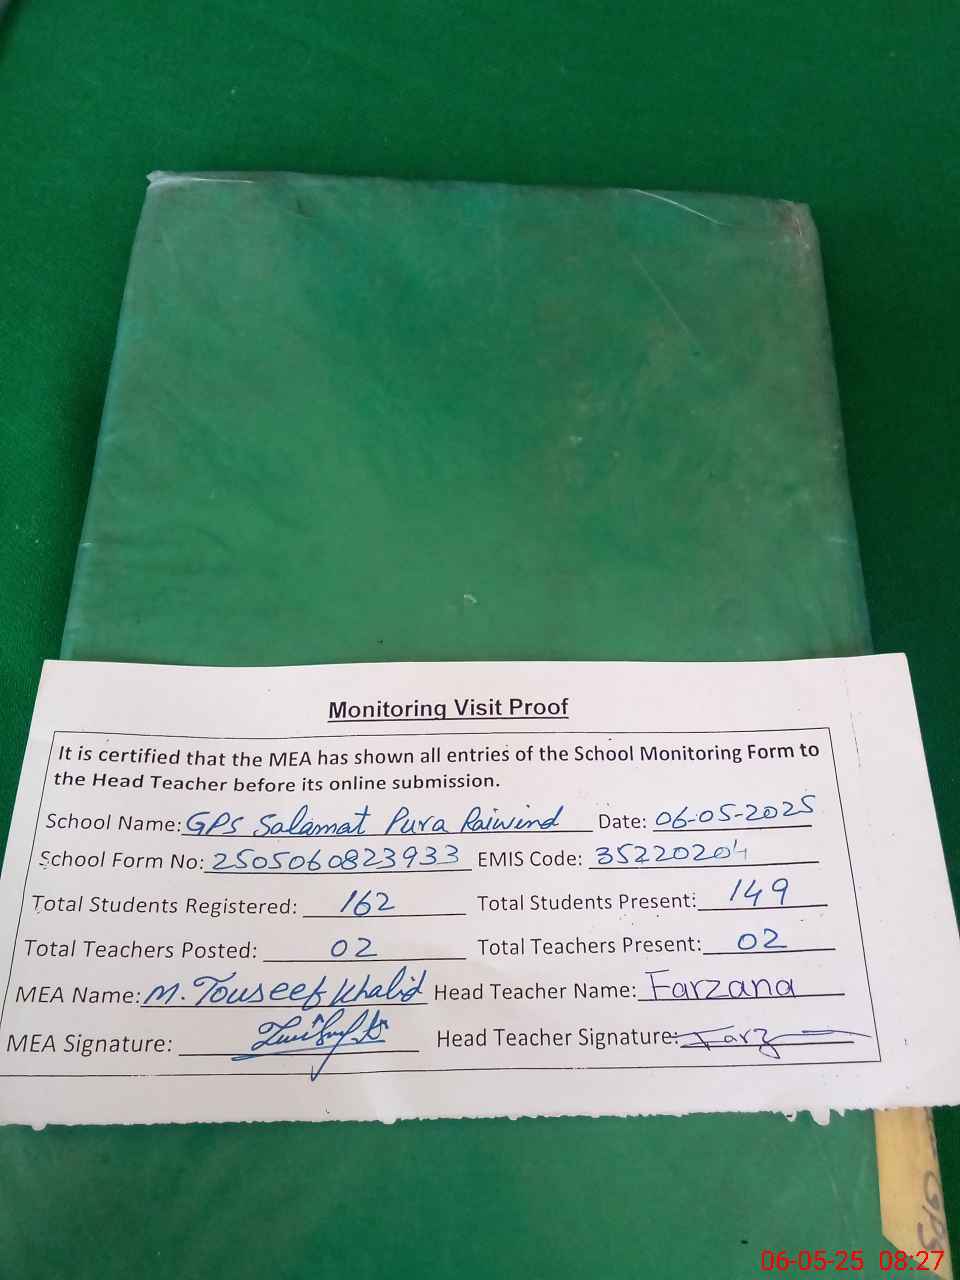 Monitoring Visit Proof
It is certified that the MEA has shown all entries of the School Monitoring Form to
the Head Teacher before its online submission.
School Name: GPS Salamat Pura Raiwind Date: 06-05-2025
School Form No: 2505060823933 EMIS Code: 35220204
Total Students Registered: 162 Total Students Present: 149
Total Teachers Posted: 02 Total Teachers Present: 02
MEA Name: M. Touseef Khalid Head Teacher Name: Farzana
MEA Signature: Head Teacher Signature: Farz
GPS
06-05-25 08:27